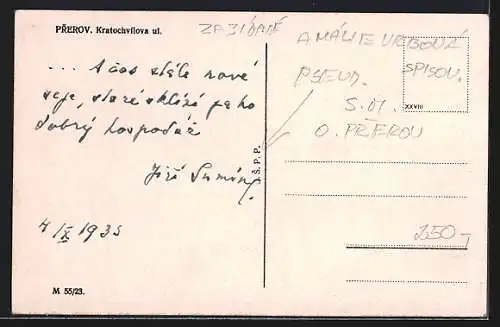 PŘEROV. Kratochvílova ul.
... A čas stále nové
seje, staré sklízí jako
dobrý hospodář
Jiří Sumín
4/IX 1935
M 55/23.
Š. P. P.
AMÁLIE VRBOVÁ
PSEUD. SPISOV.
XXVIII
S.M.
O. PŘEROV
250-